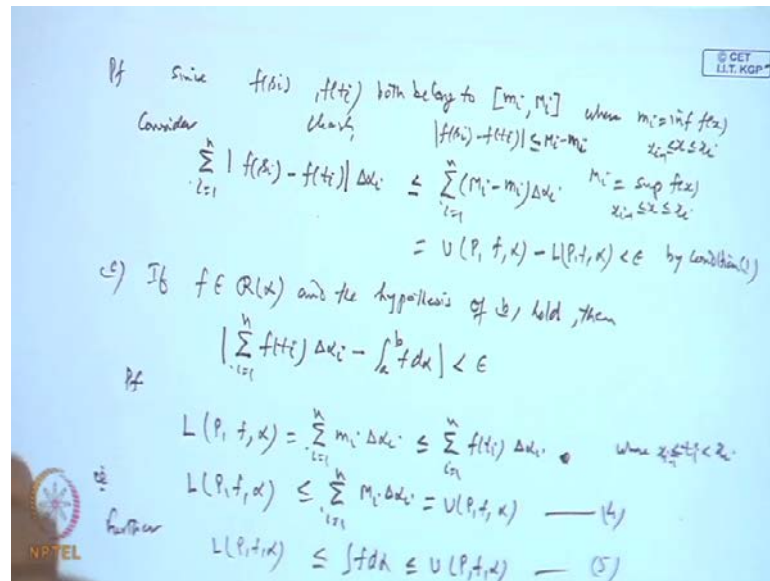 © CET
I.I.T. KGP
Pf since f(si), f(ti) both belong to [mi, Mi] where mi = inf f(x)
xi-1 ≤ x ≤ xi
Consider clearly |f(si) - f(ti)| ≤ Mi - mi
∑_{i=1}^{n} |f(si) - f(ti)| Δαi ≤ ∑_{i=1}^{n} (Mi - mi) Δαi Mi = sup f(x)
xi-1 ≤ x ≤ xi
= U(P, f, α) - L(P, f, α) < ϵ by condition (1)
c) If f ∈ R(α) and the hypothesis of b, hold, then
|∑_{i=1}^{n} f(ti) Δαi - ∫_a^b f dα| < ϵ
Pf
L(P, f, α) = ∑_{i=1}^{n} mi Δαi ≤ ∑_{i=1}^{n} f(ti) Δαi. where xi-1 ≤ ti < xi
L(P, f, α) ≤ ∑_{i=1}^{n} Mi Δαi = U(P, f, α) —— (4)
further
L(P, f, α) ≤ ∫ f dα ≤ U(P, f, α) —— (5)
NPTEL